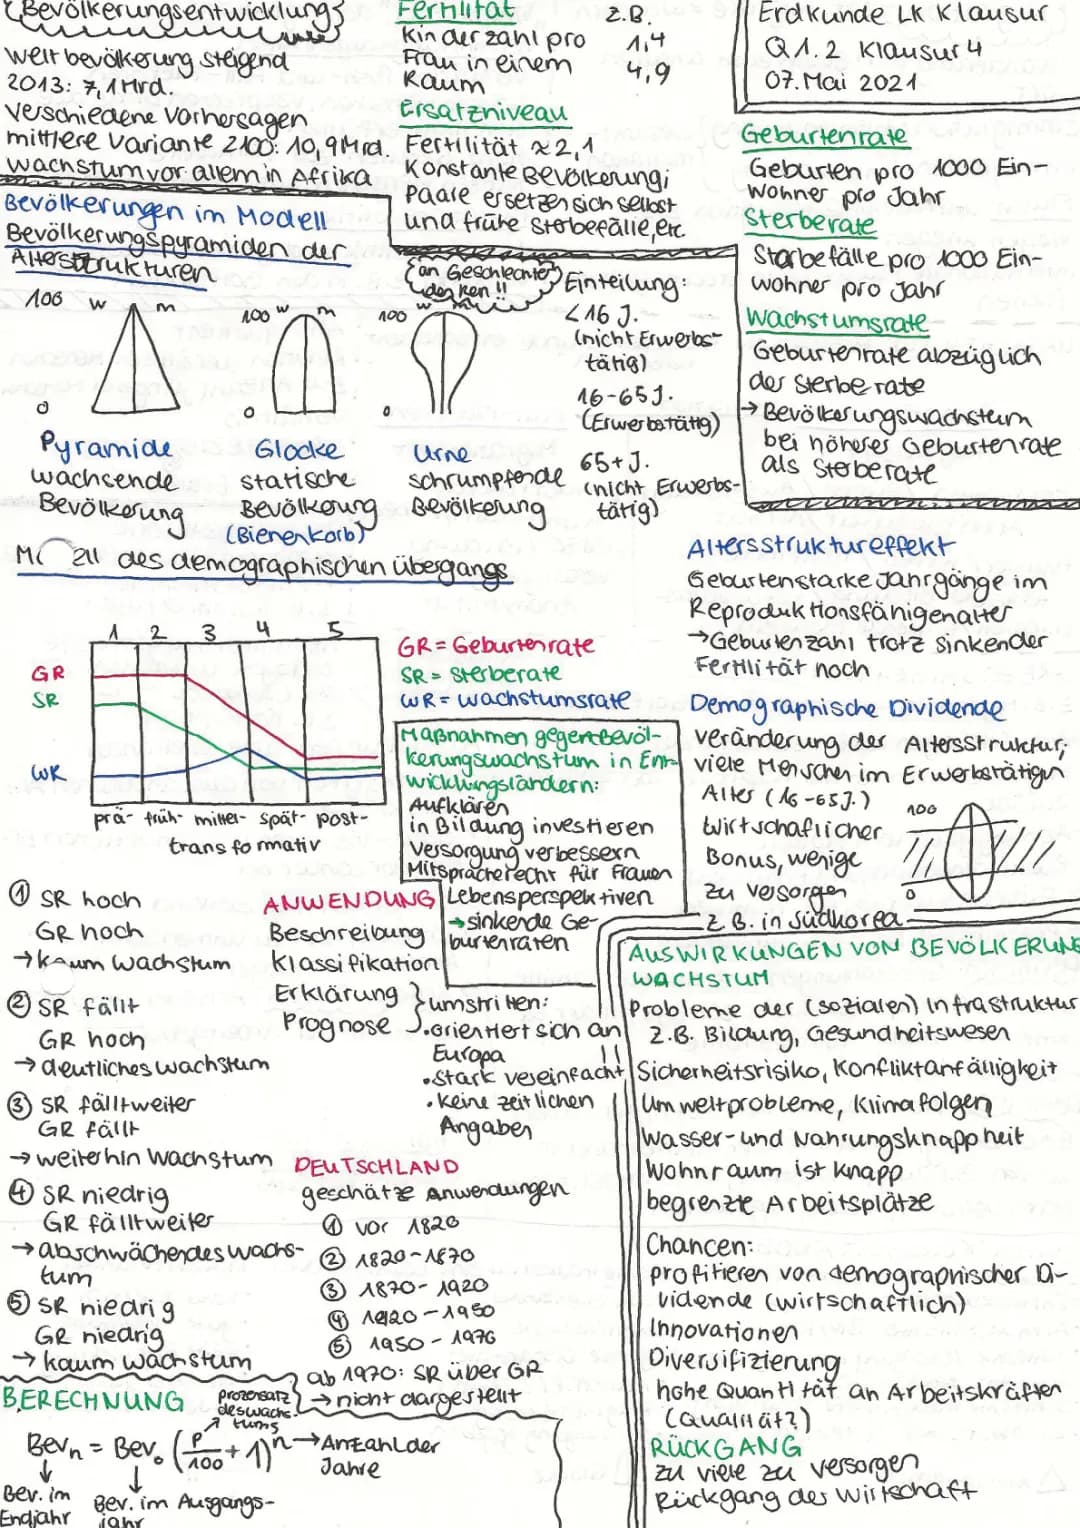 Bevölkerungsentwicklungs
Weltbevölkerung steigend
2013: 7,1 Mrd.
verschiedene Vorhersagen
mittlere Variante 2100: 10,9 Mrd.
Wachstum vor allem in Afrika
Fertilität
Kinderzahl pro
Frau in einem
Raum
z.B.
1,4
4,9
Ersatzniveau
Fertilität ≈ 2.1
Konstante Bevölkerung;
Paare ersetzen sich selbst
und frühe Sterbefälle, etc.
Erdkunde LK Klausur
Q1.2 Klausur 4
07. Mai 2021
Geburtenrate
Geburten pro 1000 Ein-
wohner pro Jahr
Sterberate
Sterbefälle pro 1000 Ein-
wohner pro Jahr
Wachstumsrate
Geburtenrate abzüglich
der Sterberate
→ Bevölkerungswachstum
bei höherer Geburtenrate
als Sterberate
Bevölkerungen im Modell
Bevölkerungspyramiden der
Altersstrukturen
100 w m
0
Pyramide
wachsende
Bevölkerung
100 w m
0
Glocke
statische
Bevölkerung
(Bienenkorb)
an Geschlechter
denken!!
100 w m
0
Urne
schrumpfende
Bevölkerung
Einteilung:
<16 J.
(nicht Erwerbs-
tätig)
16-65J.
(Erwerbstätig)
65+ J.
(nicht Erwerbs-
tätig)
des demographischen Übergangs
1 2 3 4 5
GR
SR
WR
prä- früh- mittel- spät- post-
transformativ
GR = Geburtenrate
SR = Sterberate
WR = Wachstumsrate
Altersstruktureffekt
Geburtenstarke Jahrgänge im
Reproduktionsfähigenalter
→ Geburtenzahl trotz sinkender
Fertilität noch
Demographische Dividende
Veränderung der Altersstruktur;
viele Menschen im Erwerbstätigen
Alter (16-65J.)
Wirtschaflicher
Bonus, wenige
zu versorgen
z.B. in Südkorea
100
0
Maßnahmen gegen Bevöl-
kerungswachstum in Ent-
wicklungsländern:
Aufklären
in Bildung investieren
Versorgung verbessern
Mitspracherecht für Frauen
Lebensperspektiven
→ sinkende Ge-
burtenraten
① SR hoch
GR hoch
→ kaum Wachstum
② SR fällt
GR hoch
→ deutliches Wachstum
③ SR fällt weiter
GR fällt
→ weiterhin Wachstum
④ SR niedrig
GR fällt weiter
→ abschwächendes Wachs-
tum
⑤ SR niedrig
GR niedrig
→ kaum Wachstum
ANWENDUNG
Beschreibung
Klassifikation
Erklärung
Prognose
umstritten:
• orientiert sich an
Europa
• stark vereinfacht !!
• keine zeitlichen
Angaben
DEUTSCHLAND
geschätze Anwendungen
① vor 1820
② 1820-1870
③ 1870-1920
④ 1920-1950
⑤ 1950-1970
ab 1970: SR über GR
→ nicht dargestellt
AUSWIRKUNGEN VON BEVÖLKERUNG
WACHSTUM
Probleme der (sozialen) Infrastruktur
z.B. Bildung, Gesundheitswesen
Sicherheitsrisiko, Konfliktanfälligkeit
Umweltprobleme, Klimafolgen
Wasser- und Nahrungsknappheit
Wohnraum ist knapp
begrenzte Arbeitsplätze
Chancen:
profitieren von demographischer Di-
vidende (wirtschaftlich)
Innovationen
Diversifizierung
hohe Quantität an Arbeitskräften
(Qualität?)
RÜCKGANG
zu viele zu versorgen
Rückgang der Wirtschaft
BERECHNUNG
prozensatz
des Wachs-
tums
Bevn = Bev0 (p/100 + 1)^n → Anzahl der
Jahre
Bev. im
Endjahr
Bev. im Ausgangs-
jahr